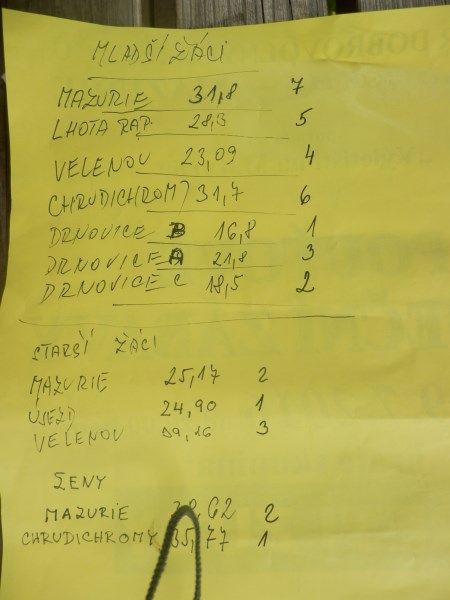 MLADŠÍ ŽÁCI
MAZURIE 31,8 7
LHOTA RAP. 28,3 5
VELENOV 23,09 4
CHRUDICHROMY 31,7 6
DRNOVICE B 16,8 1
DRNOVICE A 21,8 3
DRNOVICE C 18,5 2
STARŠÍ ŽÁCI
MAZURIE 25,17 2
ÚJEZD 24,90 1
VELENOV 39,26 3
ŽENY
MAZURIE 2
CHRUDICHROMY 35,77 1